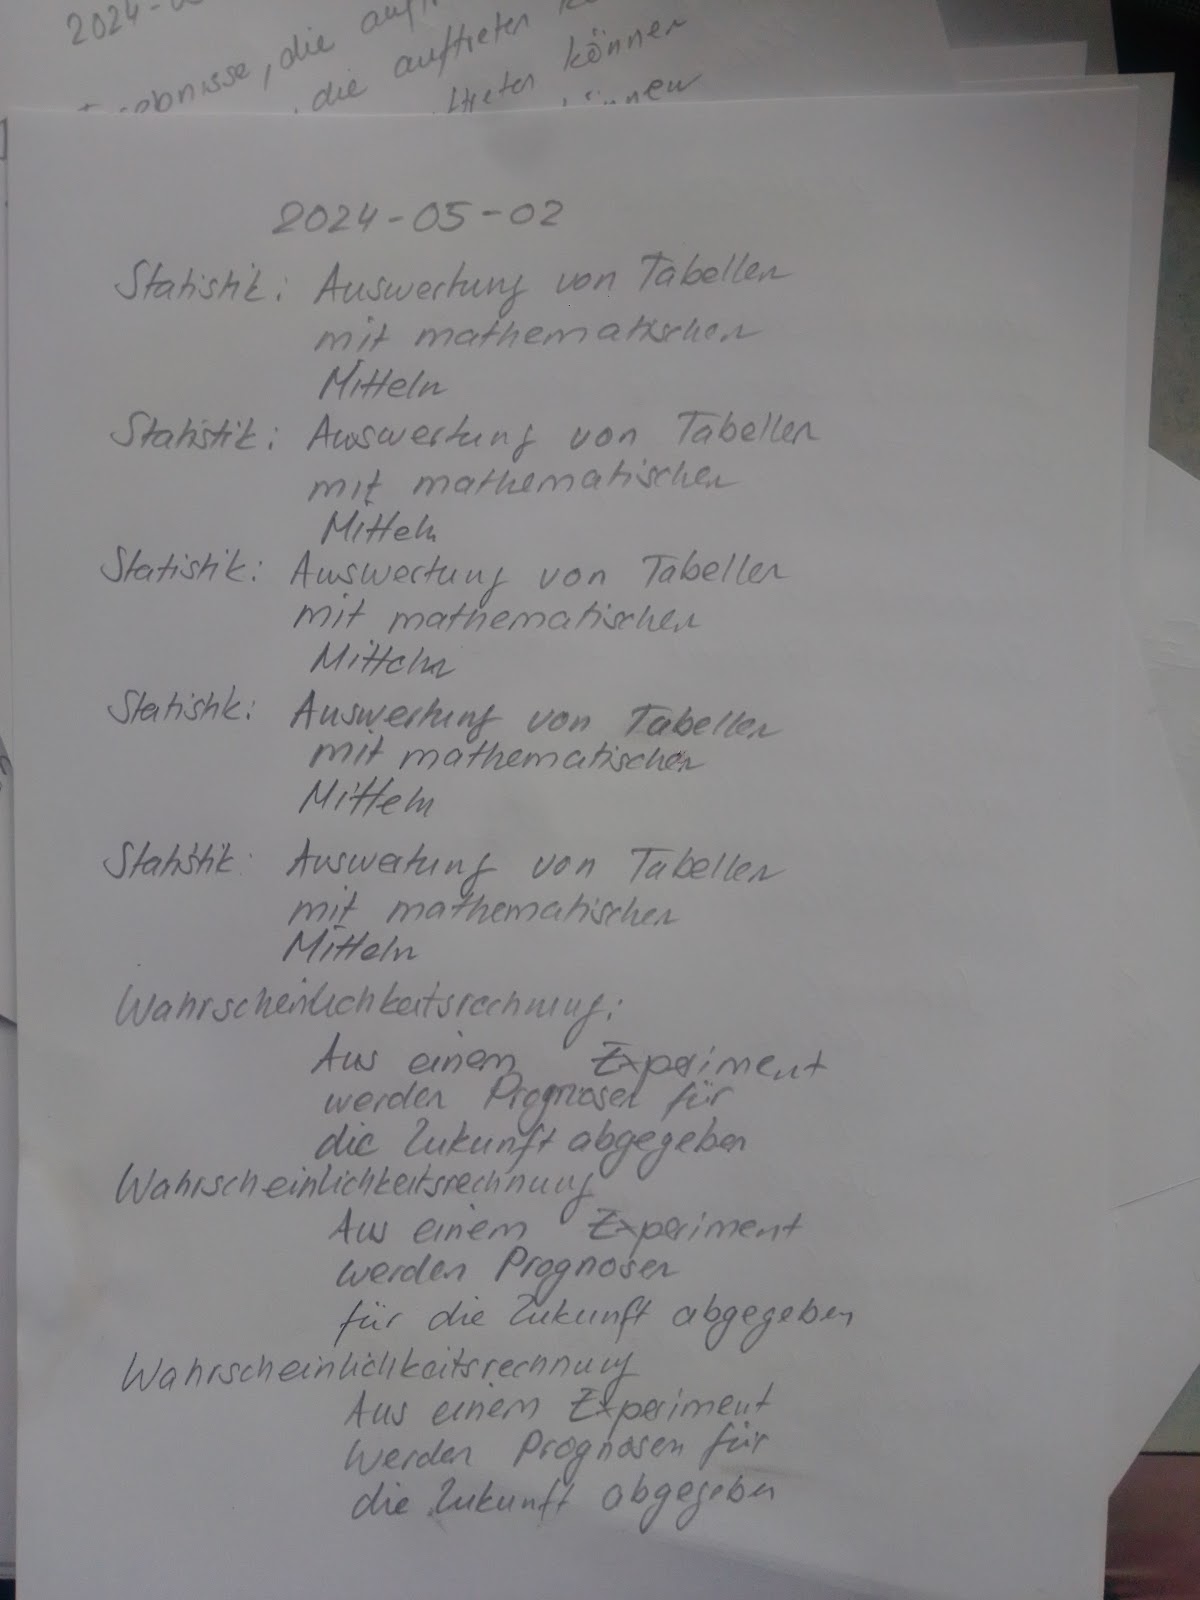 2024-0
Ergebnisse, die auftr
, die auftreten k
ltreten können
können
2024-05-02
Statistik: Auswertung von Tabellen
mit mathematischen
Mitteln
Statistik: Auswertung von Tabellen
mit mathematischen
Mitteln
Statistik: Auswertung von Tabellen
mit mathematischen
Mitteln
Statistik: Auswertung von Tabellen
mit mathematischen
Mitteln
Statistik: Auswertung von Tabellen
mit mathematischen
Mitteln
Wahrscheinlichkeitsrechnung:
Aus einem Experiment
werden Prognosen für
die Zukunft abgegeben
Wahrscheinlichkeitsrechnung
Aus einem Experiment
werden Prognosen
für die Zukunft abgegeben
Wahrscheinlichkeitsrechnung
Aus einem Experiment
werden Prognosen für
die Zukunft abgegeben